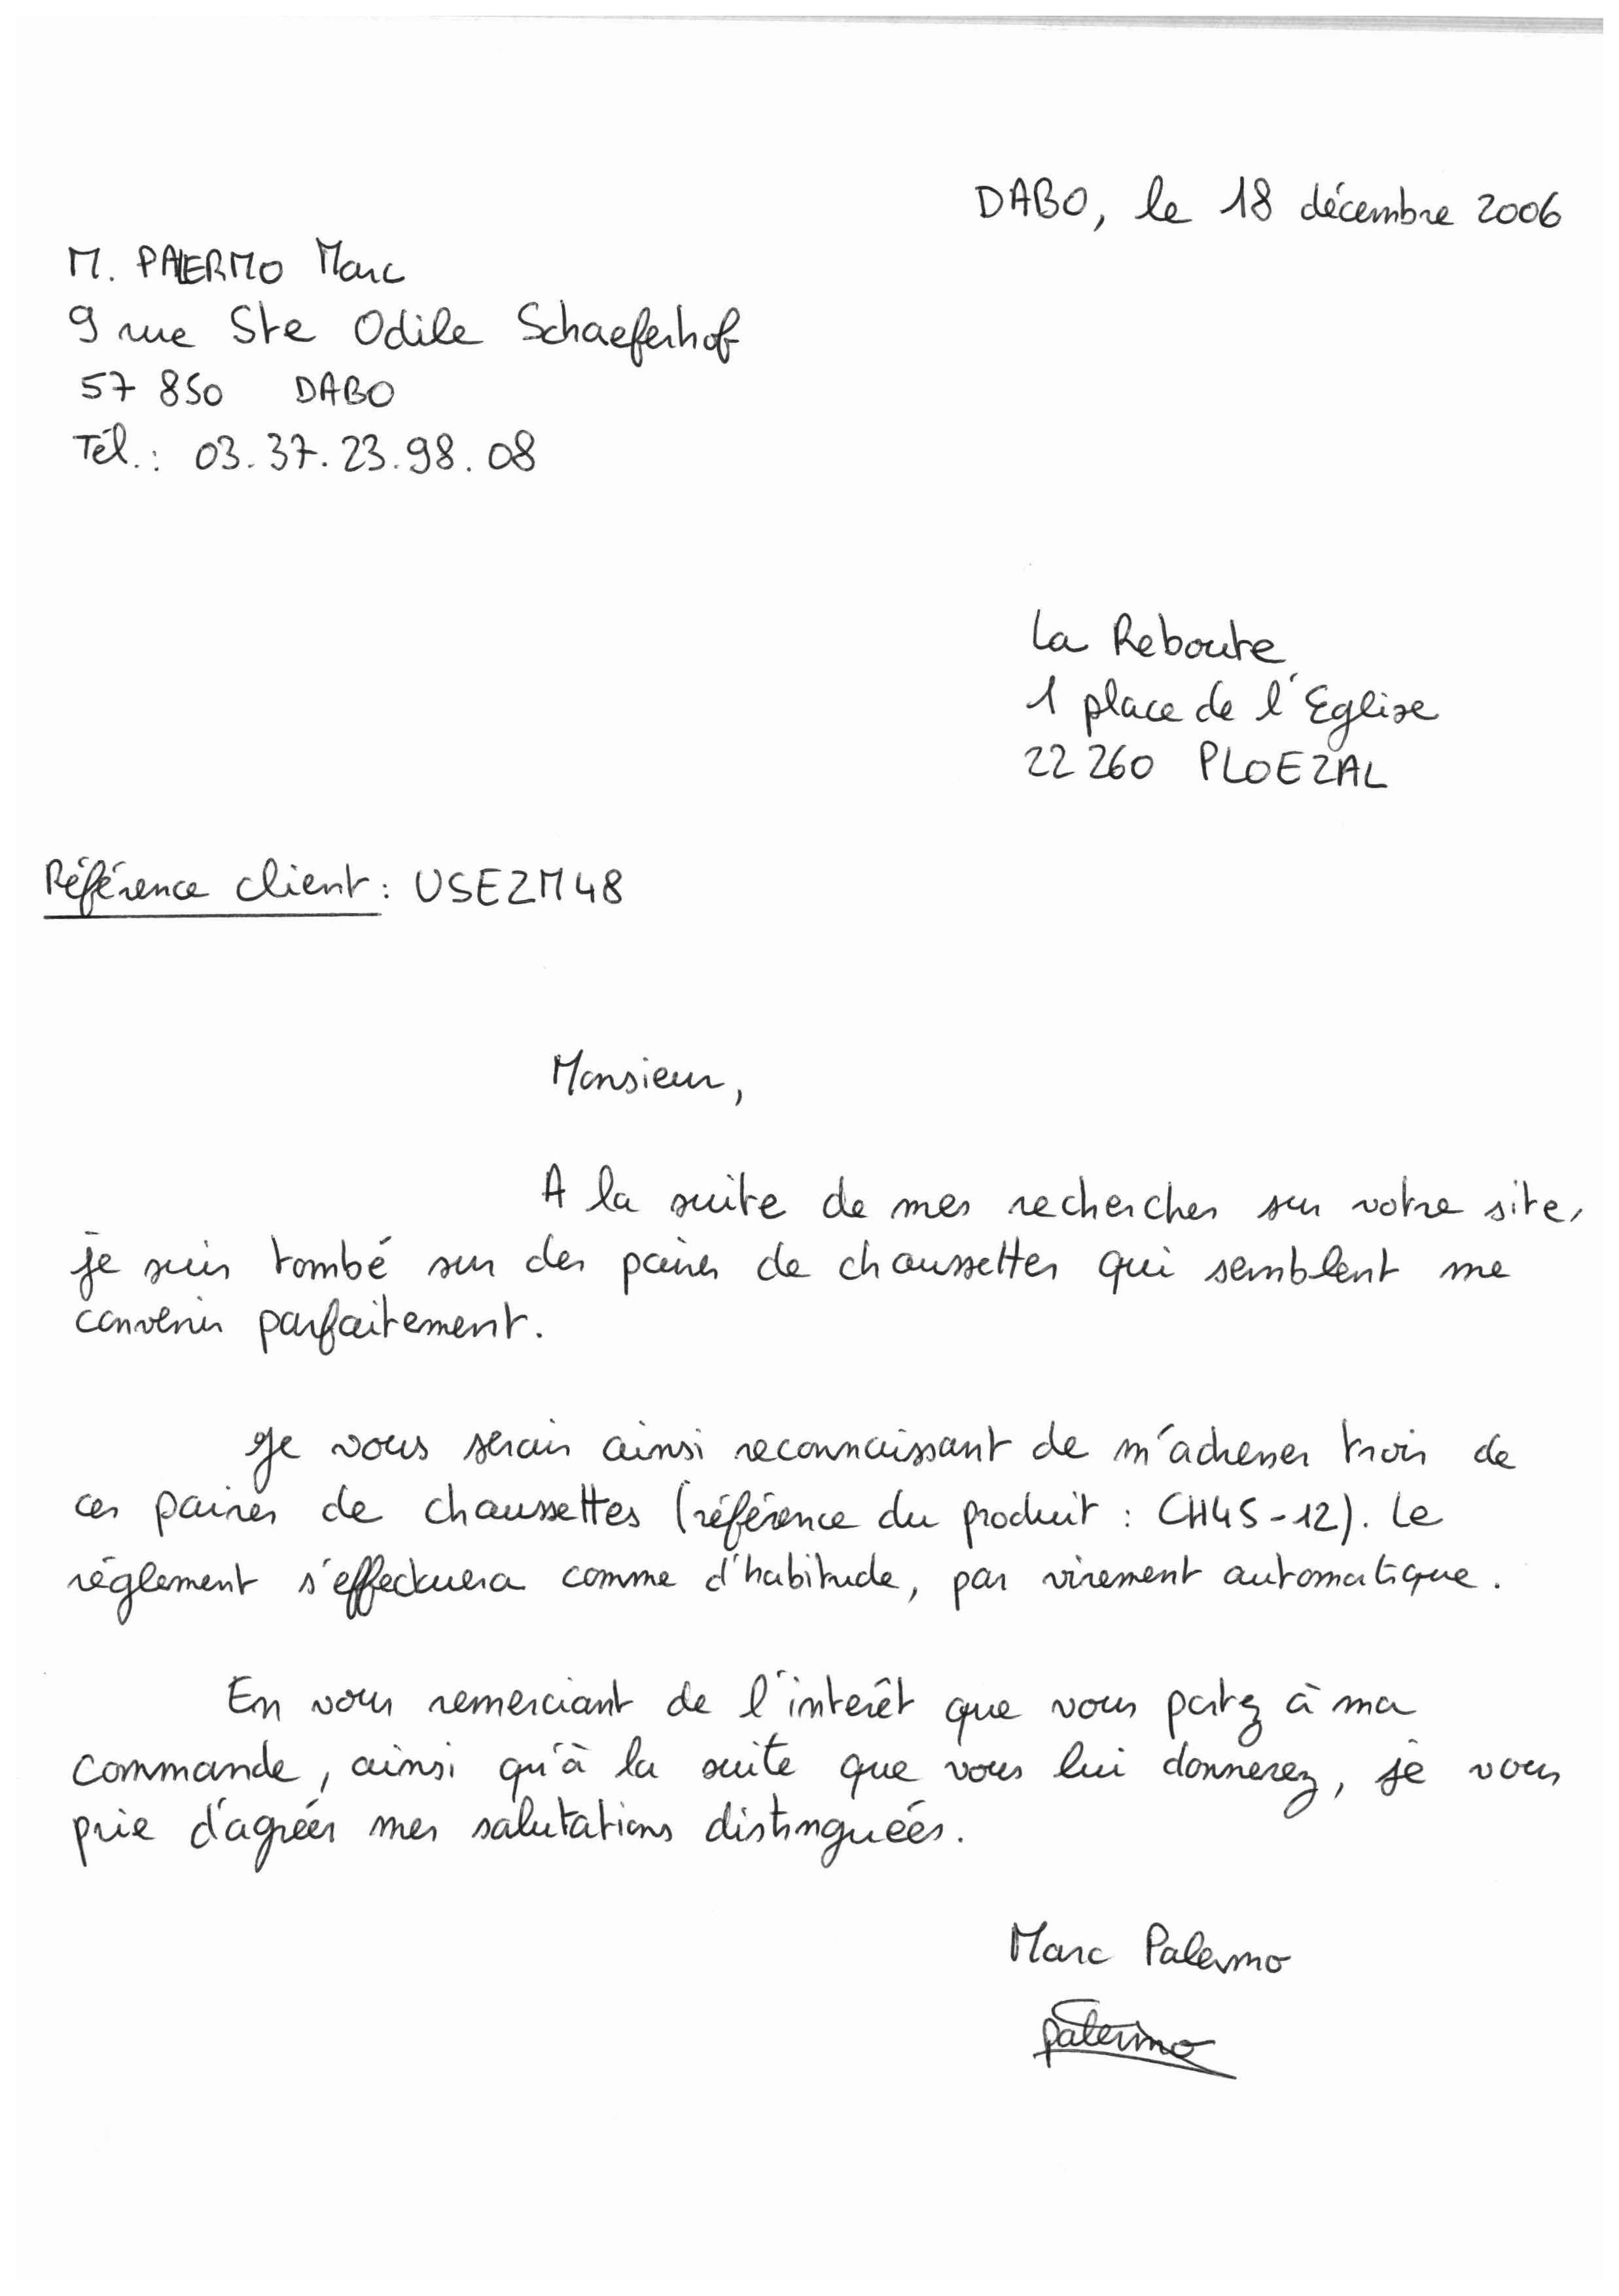 DABO, le 18 décembre 2006
M. PALERMO Marc
9 rue Ste Odile Schaeferhof
57 850 DABO
Tél.: 03.37.23.98.08
La Reboute
1 place de l'Eglise
22 260 PLOEZAL
Référence client: USEZM48
Monsieur,
A la suite de mes recherches sur votre site,
je suis tombé sur des paires de chaussettes qui semblent me
convenir parfaitement.
Je vous serais ainsi reconnaissant de m'adresser trois de
ces paires de chaussettes (référence du produit : CH45-12). Le
réglement s'effectuera comme d'habitude, par virement automatique.
En vous remerciant de l'interêt que vous portez à ma
commande, ainsi qu'à la suite que vous lui donnerez, je vous
prie d'agréer mes salutations distinguées.
Marc Palermo
Palermo